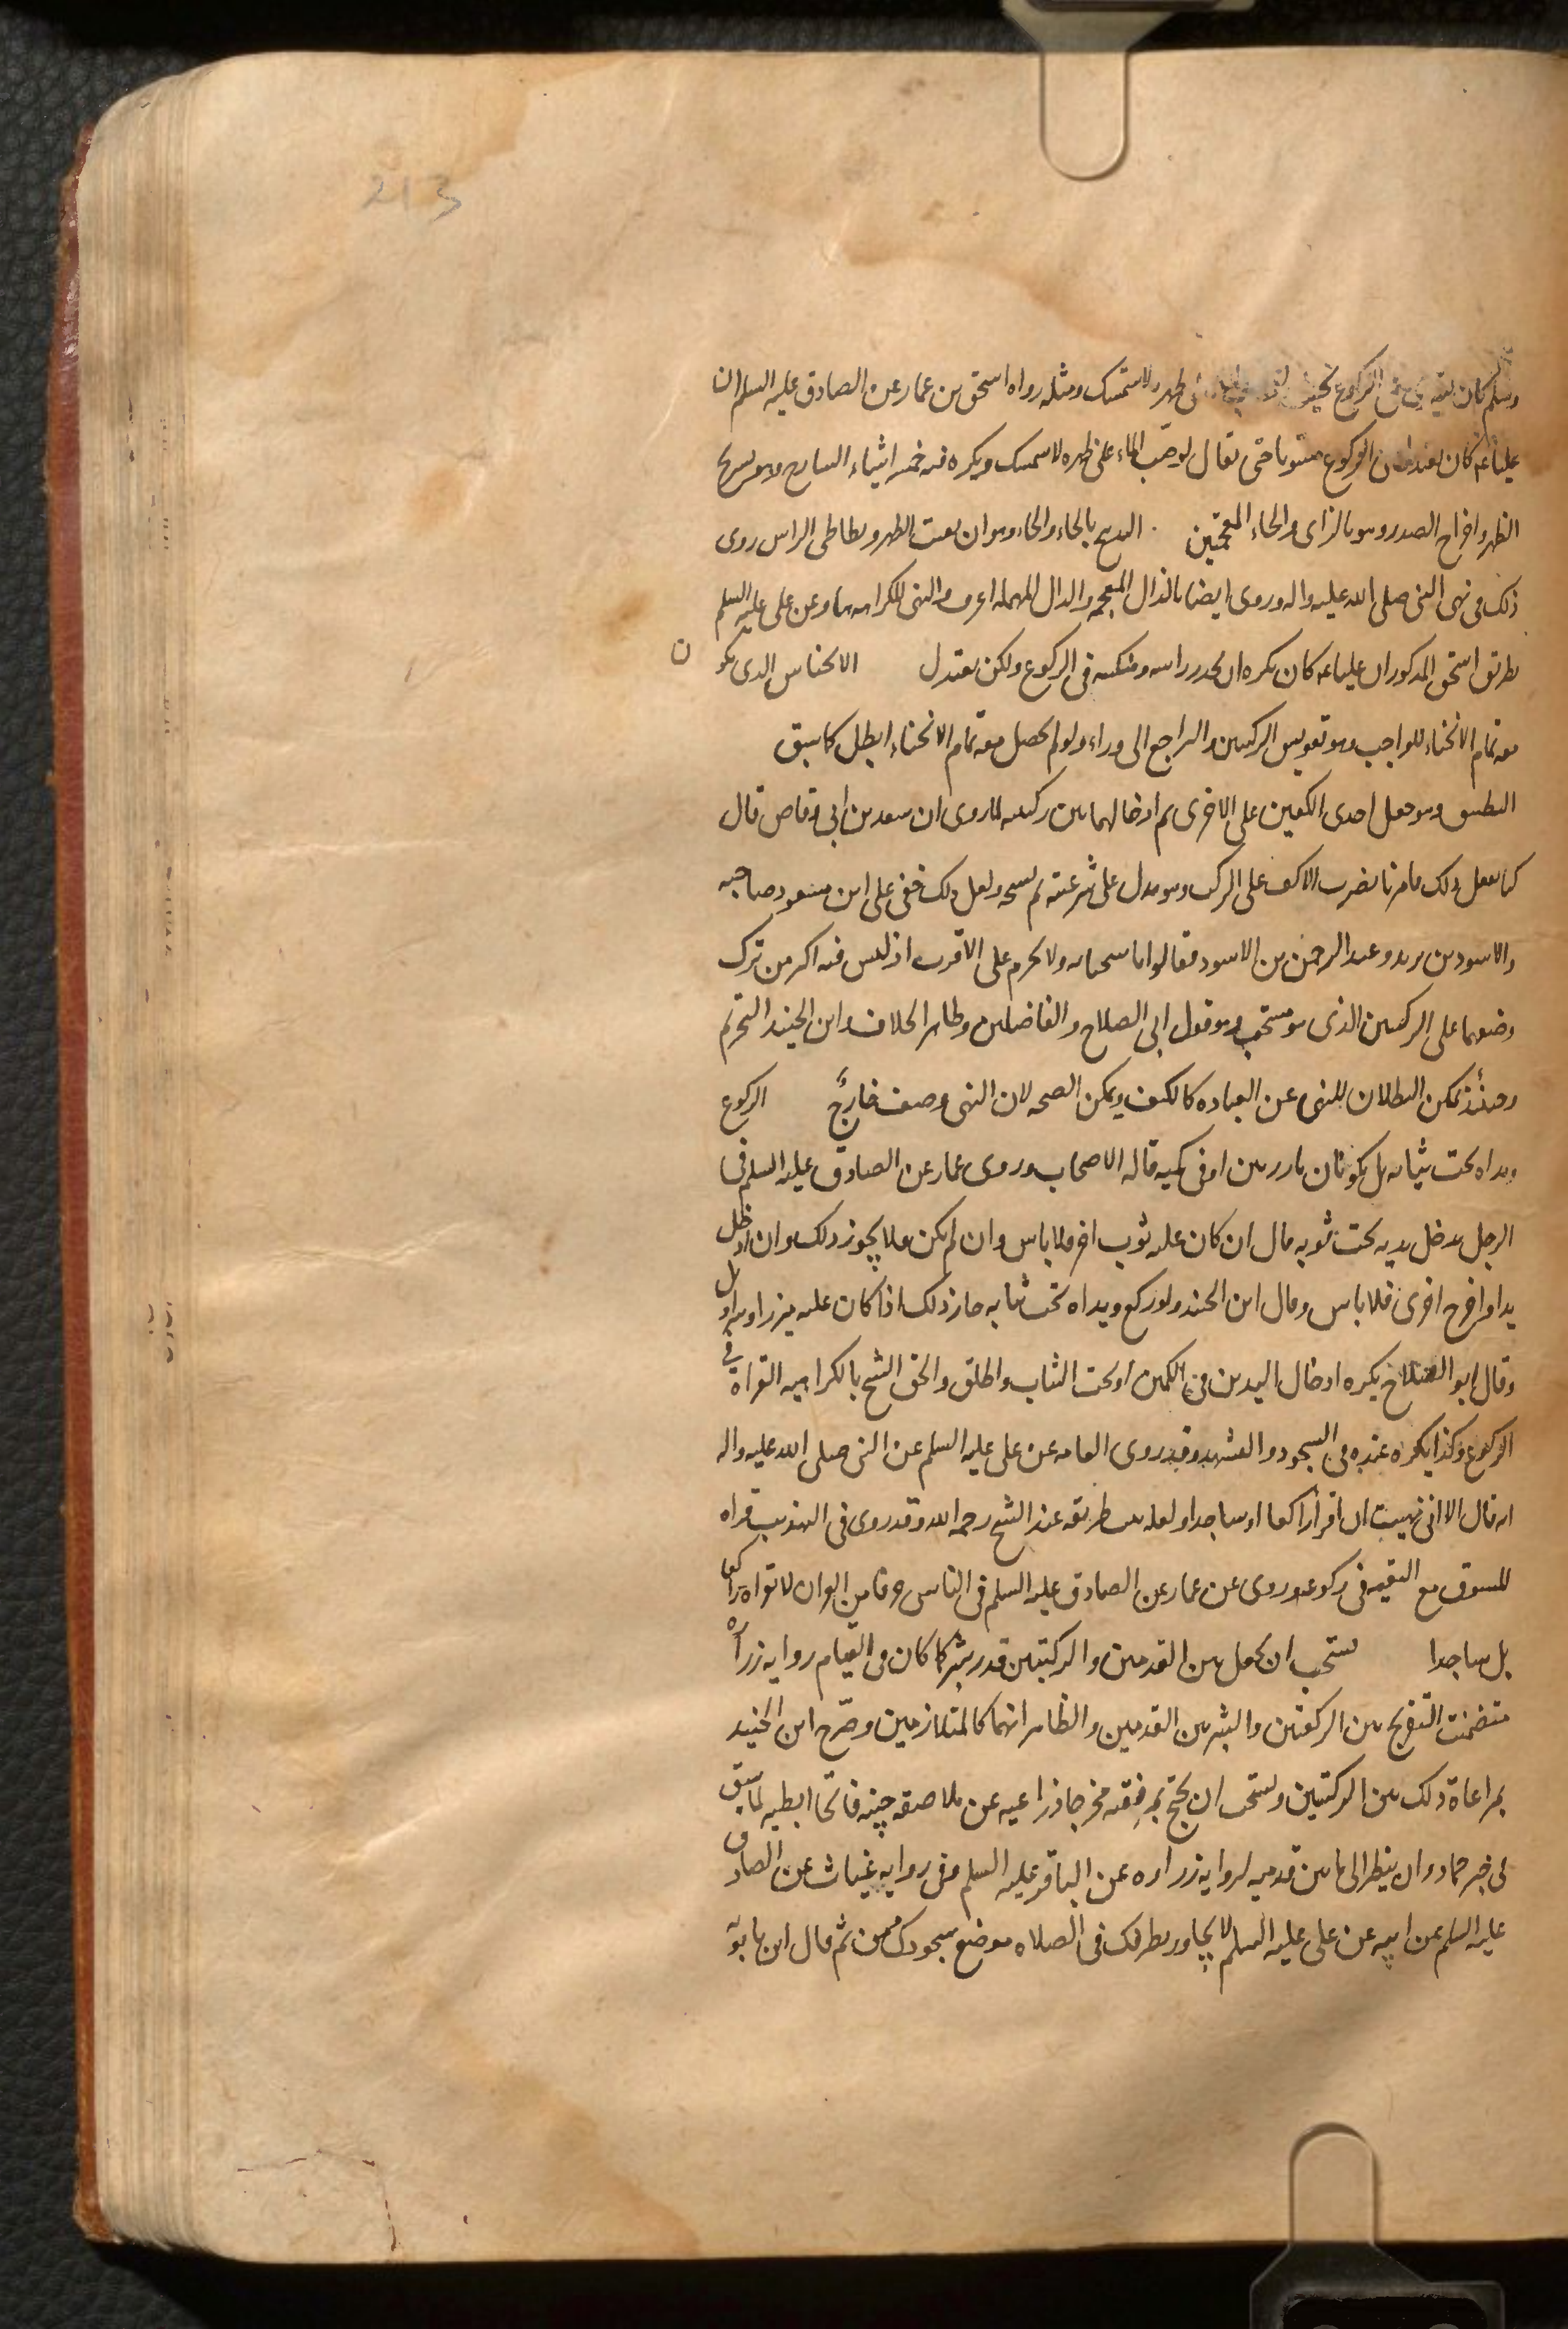 213
وسلم كان الركوع ظهره لاستمسك ومثله رواه اسحق بن عمار عن الصادق عليه السلم ان
عليا ع كان يعتدل فى الركوع مستويا حتى يقال لو صب الماء على ظهره لاستمسك ويكره فيه خمسة اشياء التبازخ وهو تسريح
الظهر واخراج الصدر وهو بالزاى والخاء المعجمتين . التدبيح بالحاء والخاء وهو ان يقبب الظهر ويطاطى الراس روى
ذلك فى نهى النبى صلى الله عليه واله وروى ايضا بالذال المعجمه والدال المهمله اعرف والنهى للكراهه هنا وعن على عليه السلم
بطريق اسحق المذكور ان عليا ع كان يكره ان يحدر راسه ومنكبيه فى الركوع ولكن يعتدل الانخناس الذى يكون
معه تمام الانحناء الواجب وهو تقويس الركبتين والتراجع الى وراء ولو لم يحصل معه تمام الانحناء ابطل كما سبق
التطبيق وهو جعل احدى الكفين على الاخرى ثم ادخالهما بين ركبتيه لما روى ان سعد بن ابى وقاص قال
كنا نفعل ذلك فامرنا بضرب الاكف على الركب وهو يدل على شرعيته ثم نسخه ولعل ذلك خفى على ابن مسعود صاحبه
والاسود بن يزيد وعبد الرحمن بن الاسود فقالوا باستحبابه ولا يحرم على الاقرب اذ ليس فيه اكثر من ترك
وضعهما على الركبتين الذى هو مستحب وهو قول ابى الصلاح والفاضلين وظاهر الخلاف وابن الجنيد التحريم
وحينئذ يمكن البطلان للنهى عن العباده كالكتف ويمكن الصحه لان النهى وصف خارج الركوع
ويداه تحت ثيابه بل يكونان بارزتين او فى كميه قاله الاصحاب وروى عمار عن الصادق عليه السلم فى
الرجل يدخل يديه تحت ثوبه قال ان كان عليه ثوب اخر فلا باس وان لم يكن فلا يجوز ذلك وان ادخل
يدا واخرج اخرى فلا باس وقال ابن الجنيد ولو ركع ويداه تحت ثيابه جاز ذلك اذا كان عليه ميزر او سراويل
وقال ابو الصلاح يكره ادخال اليدين فى الكمين او تحت الثياب واطلق والحق الشيخ بالكراهيه القراة فى
الركوع وكذا يكره عنده فى السجود والتشهد وقد روى العامه عن على عليه السلم عن النبى صلى الله عليه واله
انه قال الا انى نهيت ان اقرا راكعا او ساجدا ولعله ثبت طريقه عند الشيخ رحمه الله وقد روى فى التهذيب قراه
المسبوق مع التقيه فى ركوعه وروى عن عمار عن الصادق عليه السلم فى الناسى حرفا من القران لا يقراه راكعا
بل ساجدا يستحب ان يجعل بين القدمين والركبتين قدر شبر كما كان فى القيام روايه زراره
متضمنت التفريج بين الركبتين والشبر بين القدمين والظاهر انهما كالمتلازمين وصرح ابن الجنيد
بمراعاة ذلك بين الركبتين ويستحب ان يجنح بمرفقيه مخرجا ذراعيه عن ملاصقه جنبه فاتحا ابطيه لما سبق
فى خبر حماد وان ينظر الى ما بين قدميه لروايه زراره عن الباقر عليه السلم وفى روايه غياث عن الصادق
عليه السلم عن ابيه عن على عليه السلم لا يجاوز بطرفك فى الصلاه موضع سجودك ومن ثم قال ابن بابويه